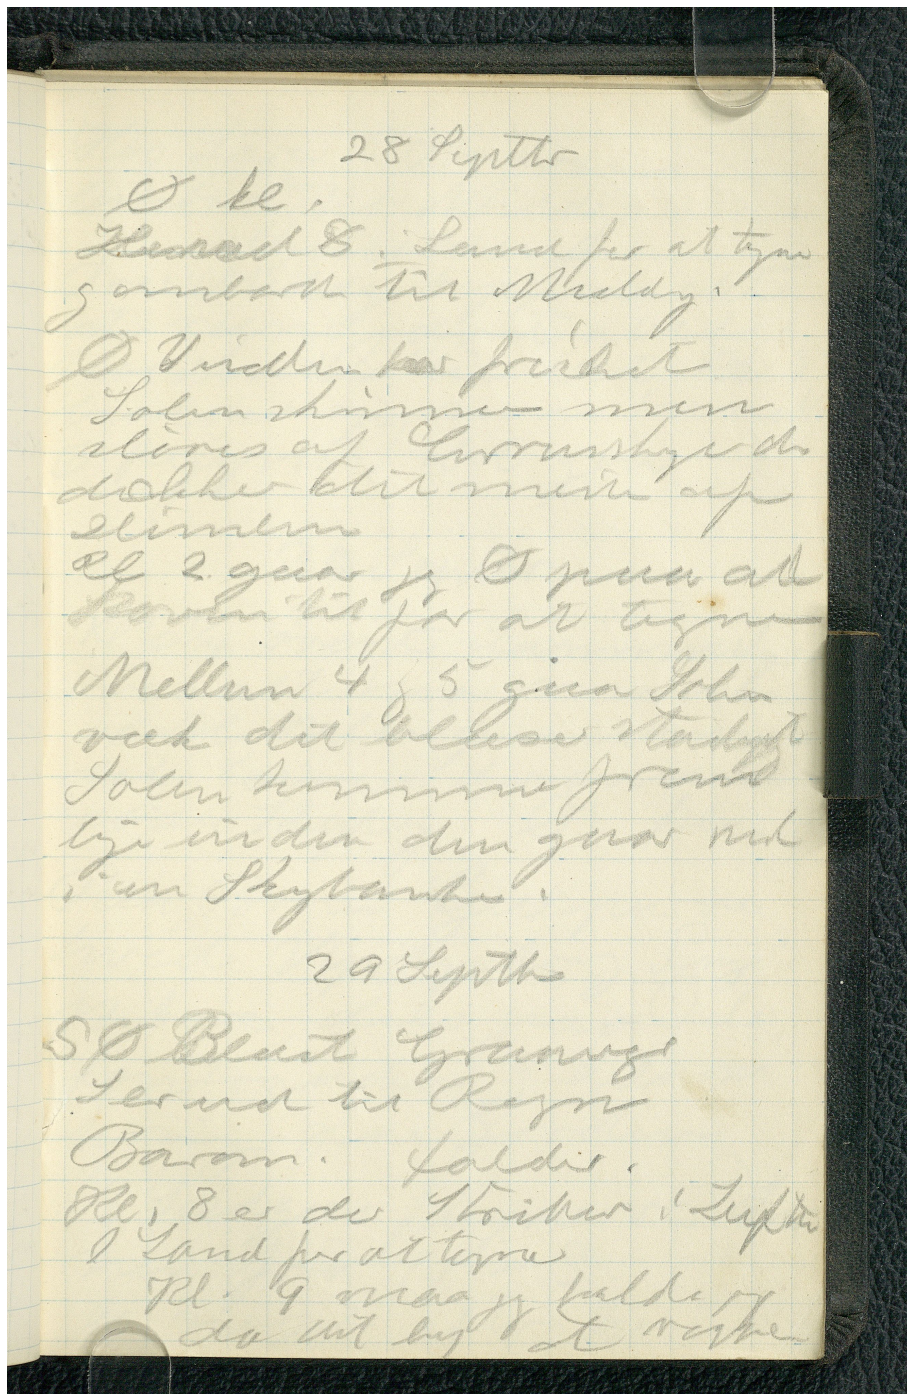 28 Septbr
Ø kl.
8 i Land for at tegne
gombord til Middg.
Ø Vinden har frisket
Solen skinner men
sløres af Cirrusskyer der
dækker det meste af
Himlen
Kl 2 gaar jg Ø paa at
Roven til for at tegne
Mellem 4 & 5 gaar Solen
væk det blæser stadigt
Solen kommer frem
lige inden den gaar ned
i en Skybanke.
29 Septbr
SØ Blæst Graavejr
Ser ud til Regn
Barom. falder.
Kl. 8 er der Striber i Luften
I Land for at tegne
Kl. 9 maa jg holde op
da det beg at regne